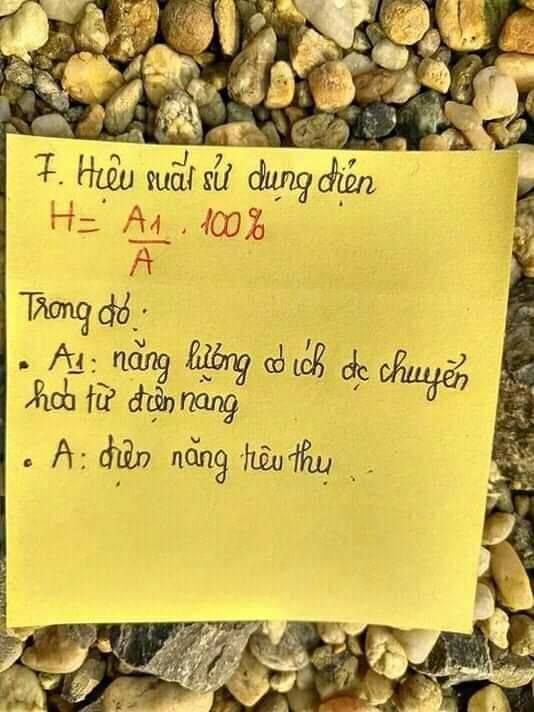 7. Hiệu suất sử dụng điện
H = A1/A . 100%
Trong đó:
• A1: năng lượng có ích đc chuyển
hoá từ điện năng
• A: điện năng tiêu thụ